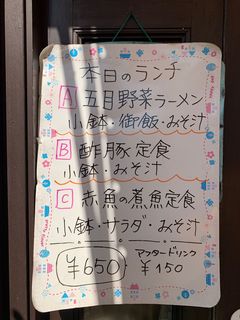 本日のランチ
A 五目野菜ラーメン
小鉢・御飯・みそ汁
B 酢豚定食
小鉢・みそ汁
C 赤魚の煮魚定食
小鉢・サラダ・みそ汁
¥650
アフタードリンク
¥150